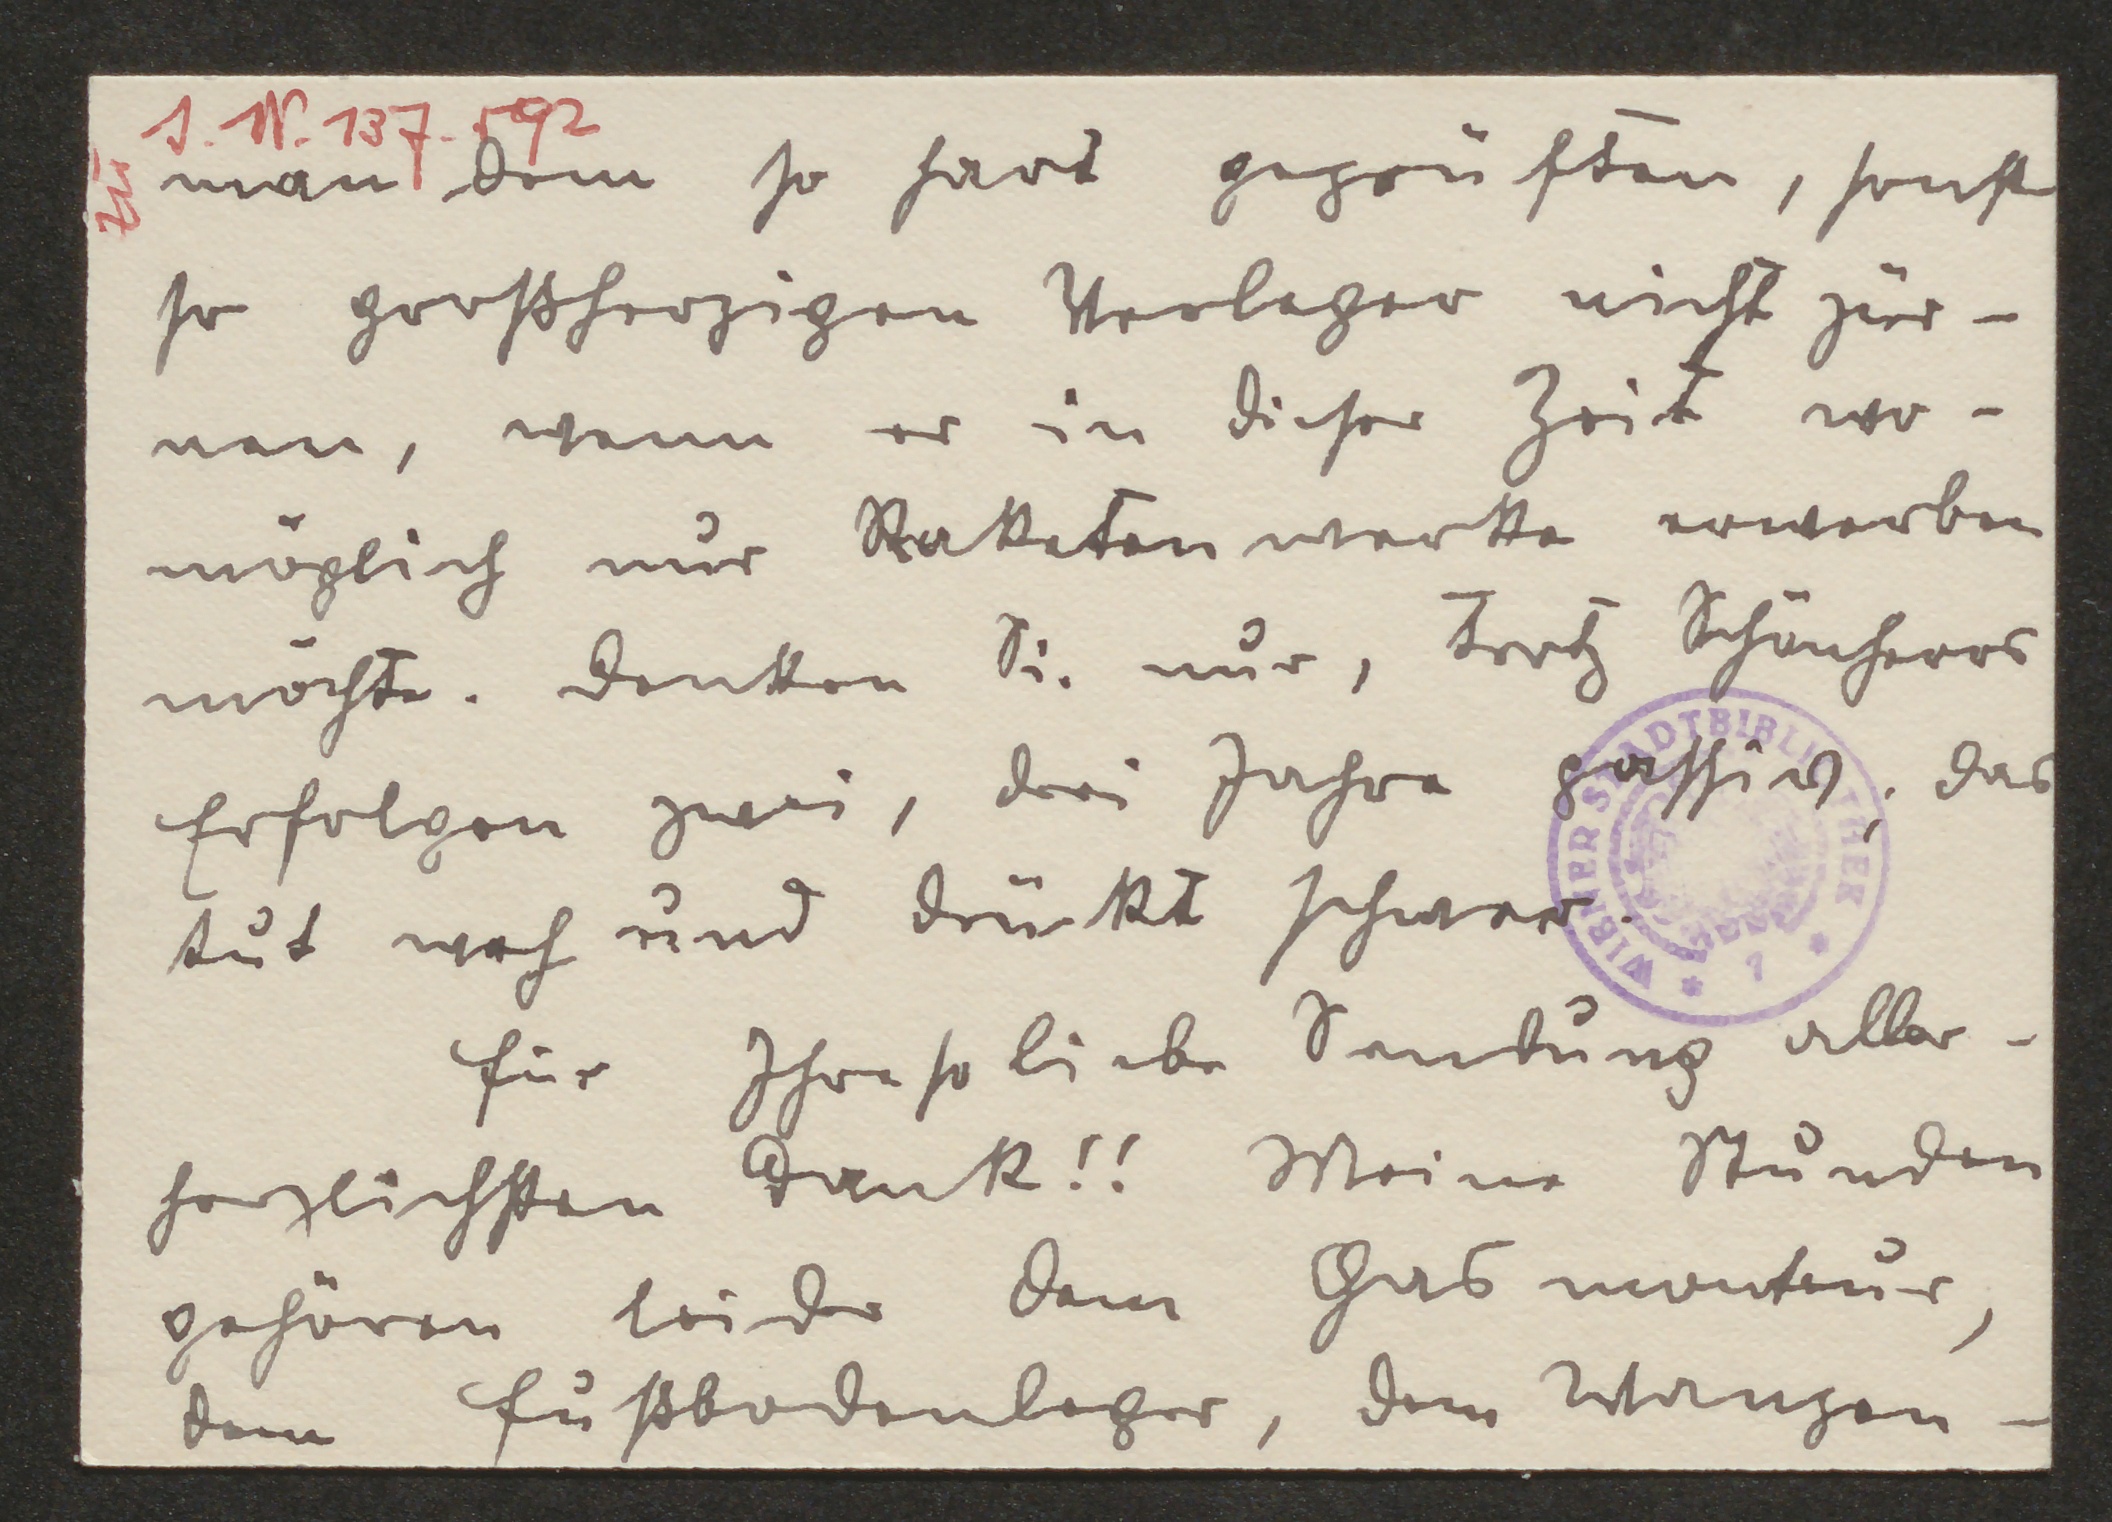 J. N. 137.592
zu
man dem so hart geprüften, sonst
so großherzigen Verleger nicht zür-
nen, wenn er in dieser Zeit wo-
möglich nur Raketenwerke erwerben
möchte. Denken Si. nur, trotz Schönherrs
Erfolgen zwei, drei Jahre passiv, das
tut weh und drückt schwer.
Für Ihre so liebe Sendung aller-
herzlichsten Dank!! Meine Stunden
gehören leider dem Gasmonteur,
dem Fußbodenleger, dem Wanzen-
WIENER STADTBIBLIOTHEK
* 1 *